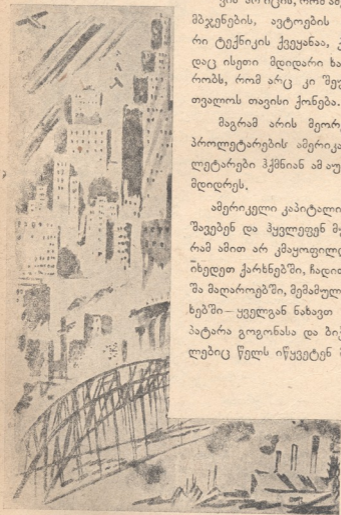 ვინ არ იცის, რომ ამ
მბჯენების, ავტოების
რი ტექნიკის ქვეყანაა,
დაც ისეთი მდიდარი ხა
რობს, რომ არც კი შეუ
თვალოს თავისი ქონება.
მაგრამ არის მეორ
პროლეტარების ამერიკა
ლეტარები ჰქმნიან ამ აუ
მდიდრეს.
ამერიკელი კაპიტალი
შავებენ და ჰყვლეფენ მუ
რამ ამით არ კმაყოფილ
იხედეთ ქარხნებში, ჩადით
შა მაღაროებში, მემამულ
ხებში — ყველგან ნახავთ
პატარა გოგონასა და ბიჭ
ლებიც წელს იწყვეტენ